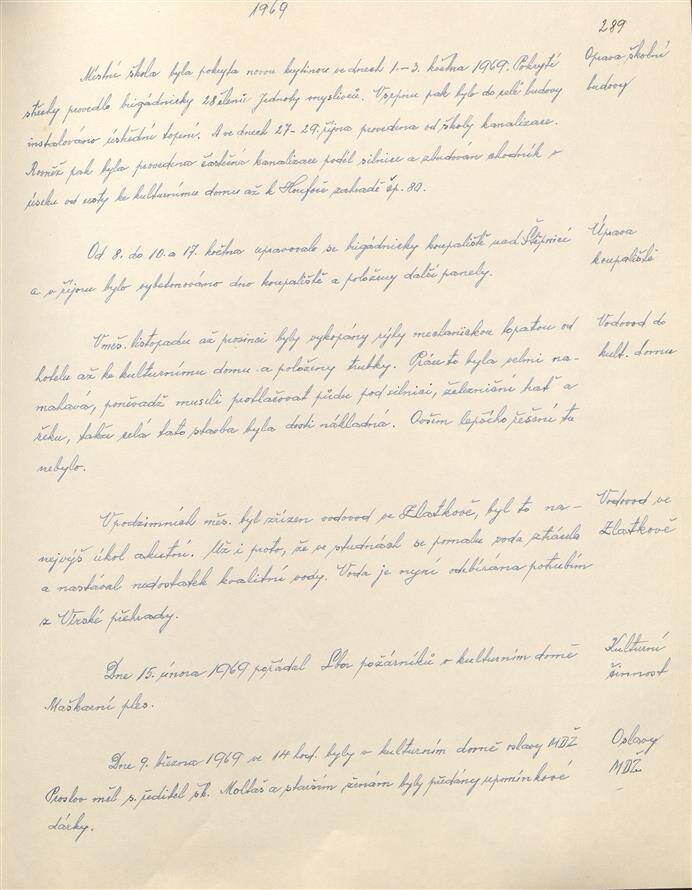 1969
289
Místní škola byla pokryta novou krytinou ve dnech 1.-3. května 1969. Pokrytí
střechy provedlo brigádnicky 28 členů Jednoty myslivců. V srpnu pak bylo do celé budovy
instalováno ústřední topení. A ve dnech 27-29. října provedena od školy kanalizace.
Rovněž pak byla provedena částečná kanalizace podél silnice a zbudován chodník v
úseku od cesty ke kulturnímu domu až k Houfově zahradě čp. 80.
Oprava školní
budovy
Od 8. do 10. a 17. května upravovalo se brigádnicky koupaliště nad Štěpnicí
a v říjnu bylo vybetonováno dno koupaliště a položeny další panely.
Úprava
koupaliště
V měs. listopadu až prosinci byly vykopány rýhy mechanickou lopatou od
hotelu až ke kulturnímu domu a položeny trubky. Práce to byla velmi na-
máhavá, poněvadž museli protlačovat půdu pod silnicí, železniční trať a
řeku, takže celá tato stavba byla dosti nákladná. Ovšem lepšího řešení tu
nebylo.
Vodovod do
kult. domu
V podzimních měs. byl zřízen vodovod ve Zlatkově, byl to na-
nejvýš úkol akutní. Už i proto, že ve studnách se pomalu voda ztrácela
a nastával nedostatek kvalitní vody. Voda je nyní odbírána potrubím
z Vírské přehrady.
Vodovod ve
Zlatkově
Dne 15. února 1969 pořádal Sbor požárníků v kulturním domě
Maškarní ples.
Kulturní
činnost
Dne 9. března 1969 ve 14 hod. byly v kulturním domě oslavy MDŽ
Proslov měl s. ředitel šk. a starším ženám byly předány upomínkové
dárky.
Oslavy
MDŽ